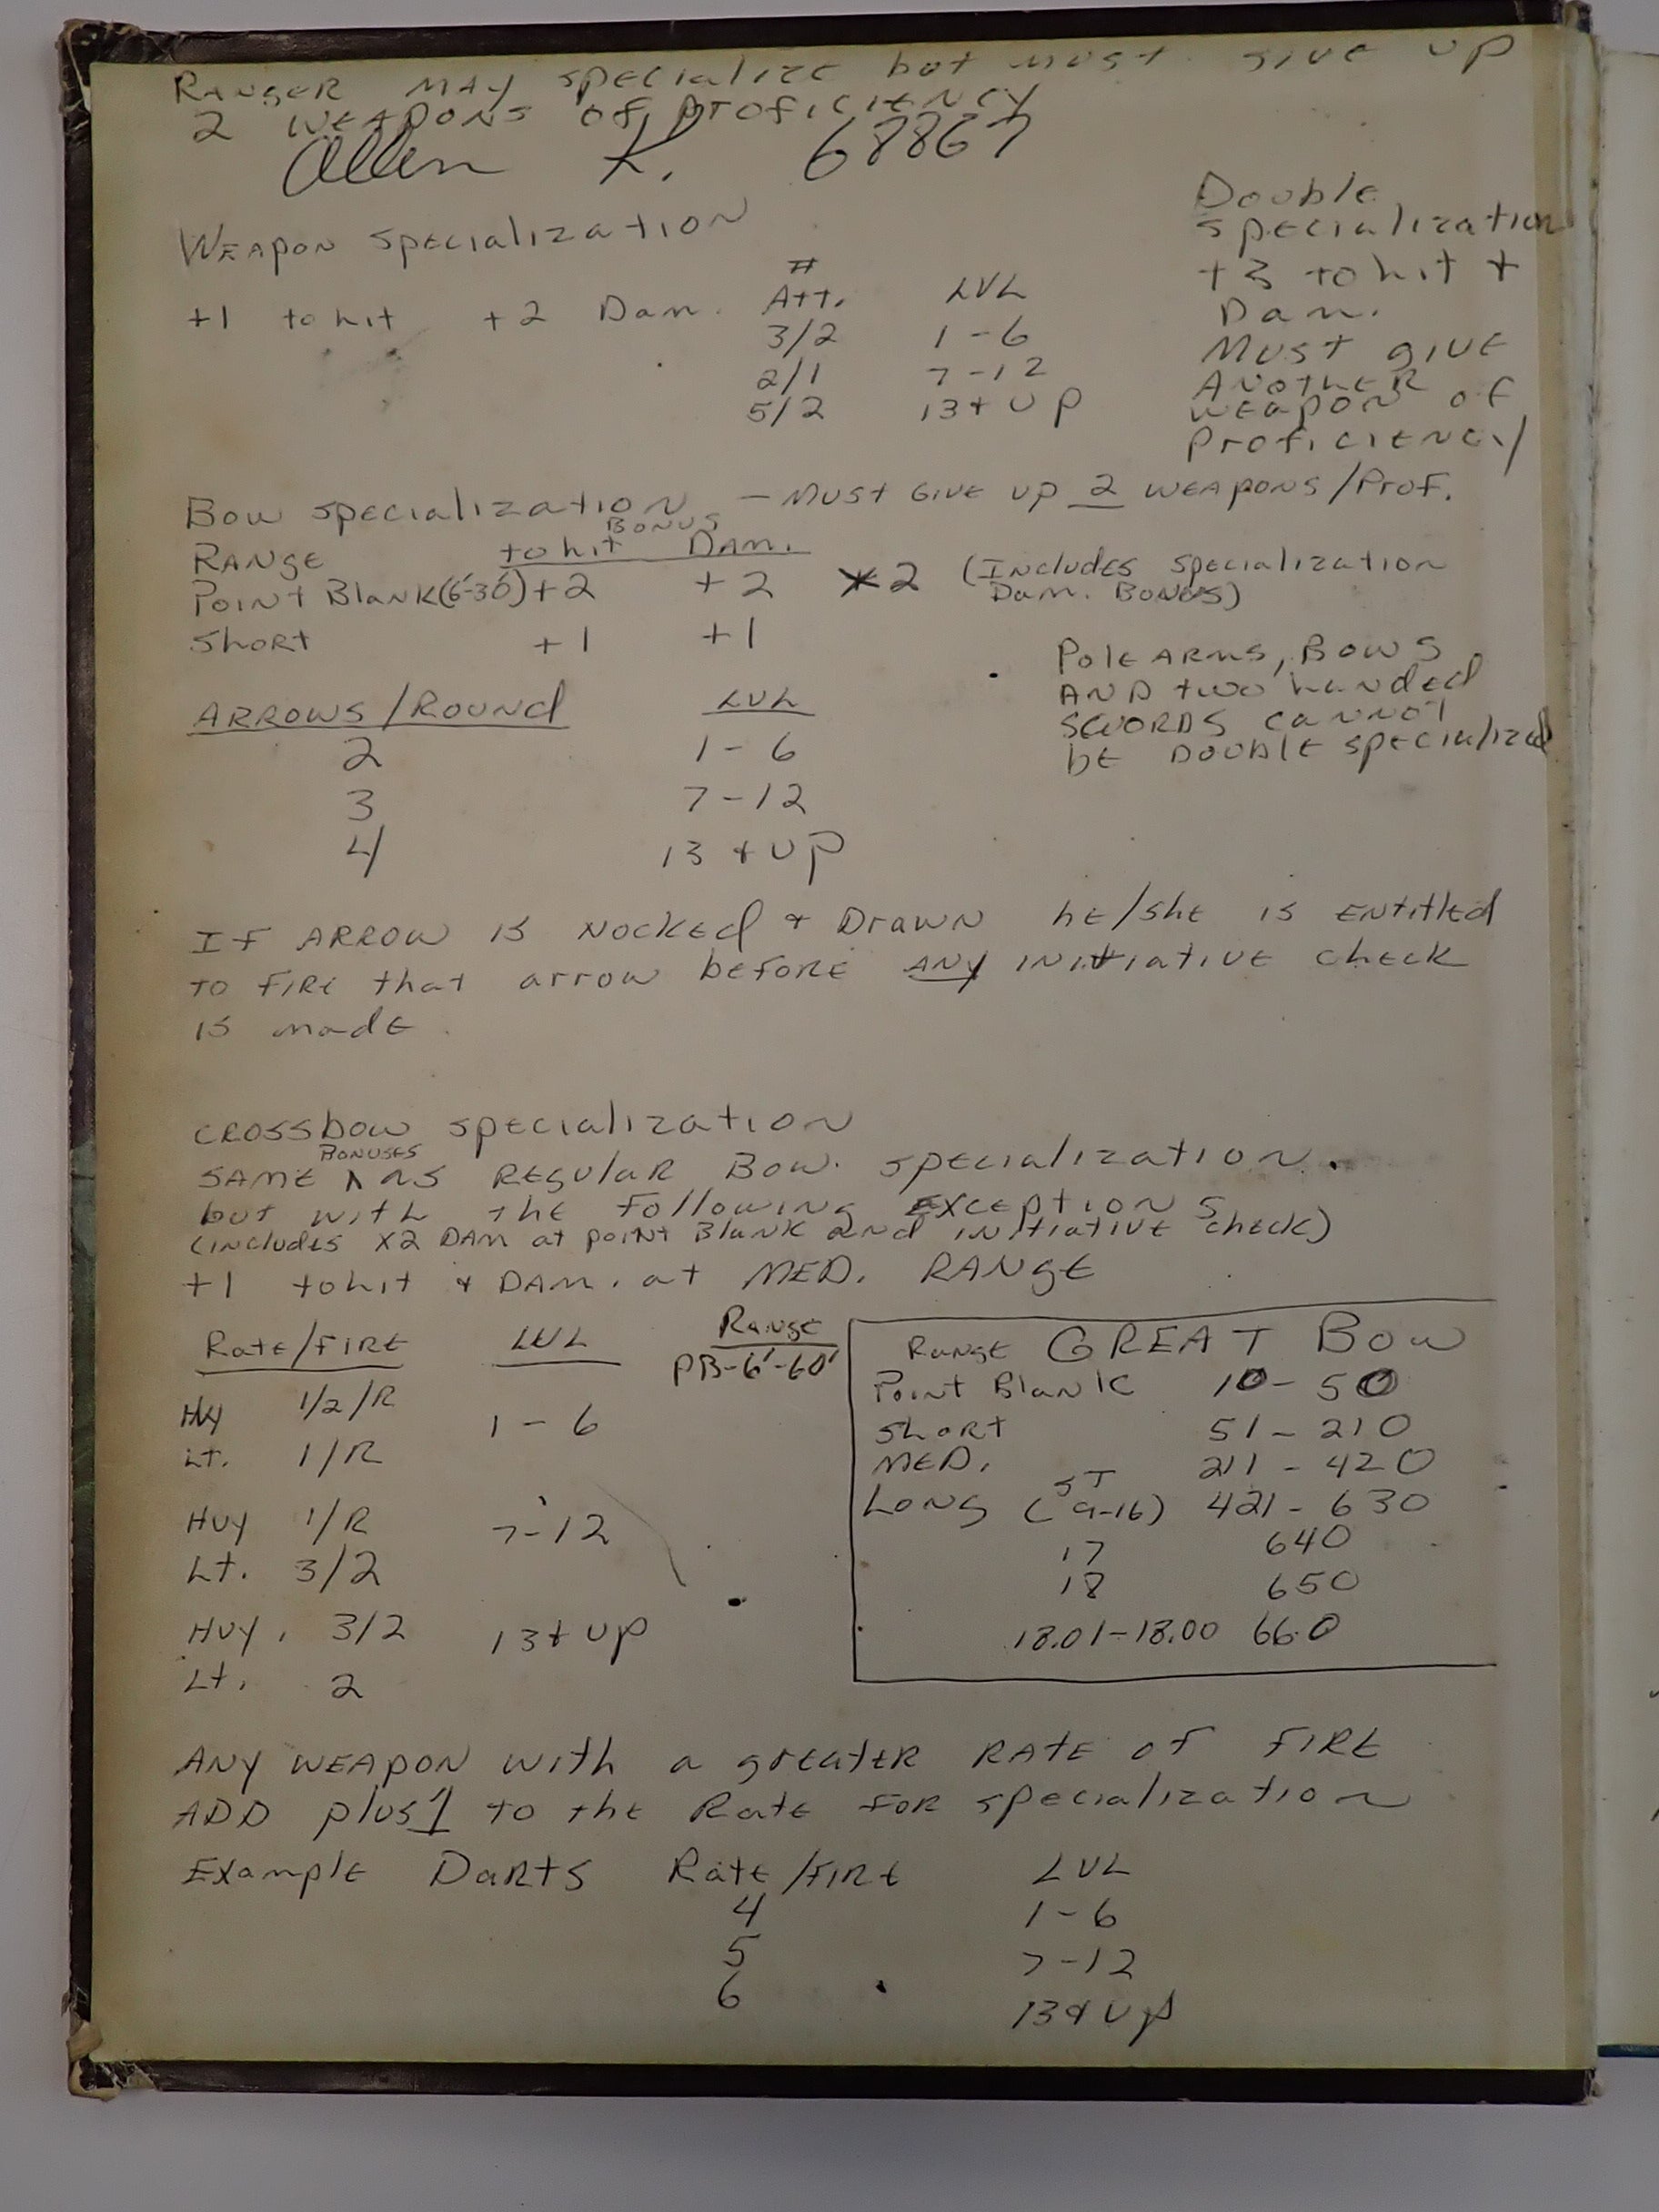 RANGER MAY specialize but must give up
2 WEAPONS of proficiency
Allen K. 68867
Weapon specialization
+1 to hit +2 Dam.
# Att. LVL
3/2 1-6
2/1 7-12
5/2 13+ UP
Double
specialization
+3 to hit +
Dam.
Must give
Another
weapon of
proficiency
Bow specialization - Must Give up 2 weapons/Prof.
BONUS
RANGE to hit DAM.
Point Blank (6'-30') +2 +2 *2 (Includes specialization
Dam. Bonus)
Short +1 +1
Pole ARMS, Bows
AND two handed
swords cannot
be Double specialized
ARROWS/ROUND LVL
2 1-6
3 7-12
4 13 + UP
If ARROW is Nocked + Drawn he/she is entitled
to fire that arrow before ANY initiative check
is made.
crossbow specialization
BONUSES
SAME ^ as REgular Bow specialization.
but with the following exceptions
(includes X2 DAM at point Blank and initiative check)
+1 to hit + DAM. at MED. RANGE
Rate/FIRE LVL Range
PB-6'-60'
Hvy 1/2/R 1-6
Lt. 1/R
Hvy 1/R 7-12
Lt. 3/2
Hvy. 3/2 13+ up
Lt. 2
Range GREAT Bow
Point Blank 10-50
Short 51-210
MED. 211-420
ST
Long (9-16) 421-630
17 640
18 650
18.01-18.00 660
ANY WEAPON with a greater RATE of FIRE
ADD plus 1 to the Rate for specialization
Example Darts Rate/FIRE LVL
4 1-6
5 7-12
6 13+ up